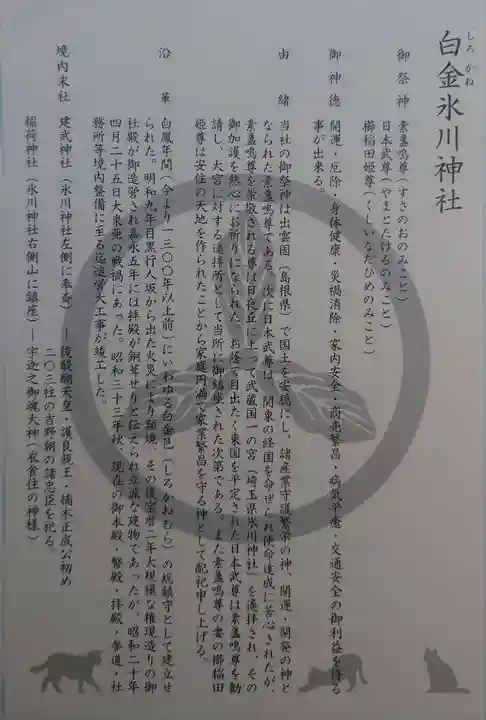 しろ かね
白金氷川神社
御祭神 素盞鳴尊(すさのおのみこと)
日本武尊(やまとたけるのみこと)
櫛稲田姫尊(くしいなだひめのみこと)
御神徳 開運・厄除・身体健康・災禍消除・家内安全・商売繁昌・病気平癒・交通安全の御利益を得る
事が出来る。
由緒 当社の御祭神は出雲国(島根県)で国土を安穏にし、諸産業守護繁栄の神、開運・開発の神と
なられた素盞鳴尊である。次に日本武尊は、関東の経国を命ぜられ使命達成に苦心されたが、
素盞鳴尊を崇敬される尊は日夜丘に上って武蔵国一の宮「埼玉県氷川神社」を遙拝され、その
御加護を熱心に お祈りになられた。お陰で目出たく東国を平定された日本武尊は素盞鳴尊を勧
請し、大宮に対する遙拝所として当所に御鎮座された次第である。また素盞鳴尊の妻の櫛稲田
姫尊は安住の天地を作られたことから家庭円満で家業繁昌を守る神として配祀申し上げる。
沿革 白鳳年間(今より一三〇〇年以上前)にいわゆる白金邑(しろかねむら)の総鎮守として建立せ
られた。明和九年目黒行人坂から出た火災により類焼、その後宝暦二年大規模な権現造りの御
社殿が御造営され弘化五年には拝殿が銅葺せりと伝えられ立派な建物であったが、昭和二十年
四月二十五日大東亜の戦禍にあった。昭和三十三年秋、現在の御本殿・幣殿・拝殿・参道・社
務所等境内整備に至る迄造営大工事が竣工した。
境内末社 建武神社(氷川神社左側に奉斎)―後醍醐天皇・護良親王・楠木正成公初め
二〇三社の吉野朝の諸忠臣を祀る。
稲荷神社(氷川神社右側山に鎮座)―宇迦之御魂大神(衣食住の神様)